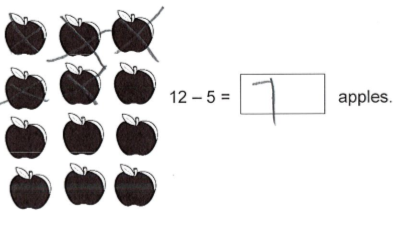 12 – 5 = 7 apples.